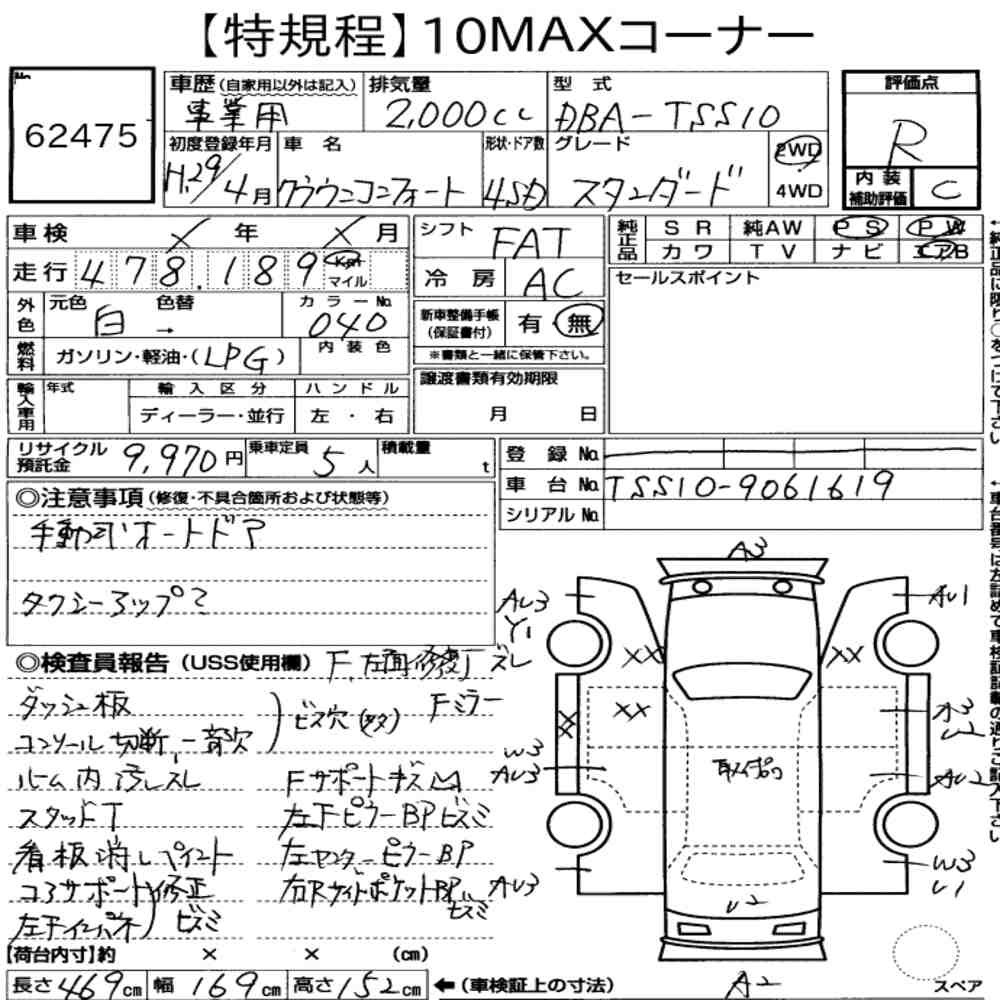 【特規程】10MAXコーナー
No
62475
車歴 (自家用以外は記入) 事業用
排気量 2,000cc
型式 DBA-TSS10
評価点 R
内装補助評価 C
初度登録年月 H.29/4月
車名 クラウンコンフォート
形状・ドア数 4SD
グレード スタンダード
2WD
4WD
車検 × 年 × 月
走行 478,189 Km マイル
シフト FAT
冷房 AC
純正品 SR 純AW PS PW
カワ TV ナビ エアB
外色 元色 白 色替 → カラーNo. 040
新車整備手帳 (保証書付) 有・無
※書類と一緒に保管下さい。
セールスポイント
燃料 ガソリン・軽油・(LPG) 内装色
輸入車用 年式 輸入区分 ハンドル
ディーラー・並行 左・右
譲渡書類有効期限
月 日
リサイクル預託金 9,970円 乗車定員 5人 積載量 t
登録No.
車台No. TSS10-9061619
シリアルNo.
◎注意事項 (修復・不具合箇所および状態等)
手動式オートドア
タクシーアップ
◎検査員報告 (USS使用欄) F.左面修復 ズレ
ダッシュ板
コンソール切断 一部欠
ビス穴 Fミラー
ルーム内汚レスレ Fサポートキズ
スタッドT 左Fピラー BP ビズミ
看板消しペイント 左センターピラー BP
コアサポート修正 右Rサイドポケット BP ビズミ
左Fインパネ ビズミ
【荷台内寸】約 × × (cm)
長さ 469cm 幅 169cm 高さ 152cm ←(車検証上の寸法)
A3
AU3
Y1
AU1
XX
XX
XX
XX
W3
AU3
AU2
AU3
W3
U1
U2
A2
スペア
←純正品に限り○をつけて下さい
←車台番号は左詰めで車検証記載の通りご記入下さい